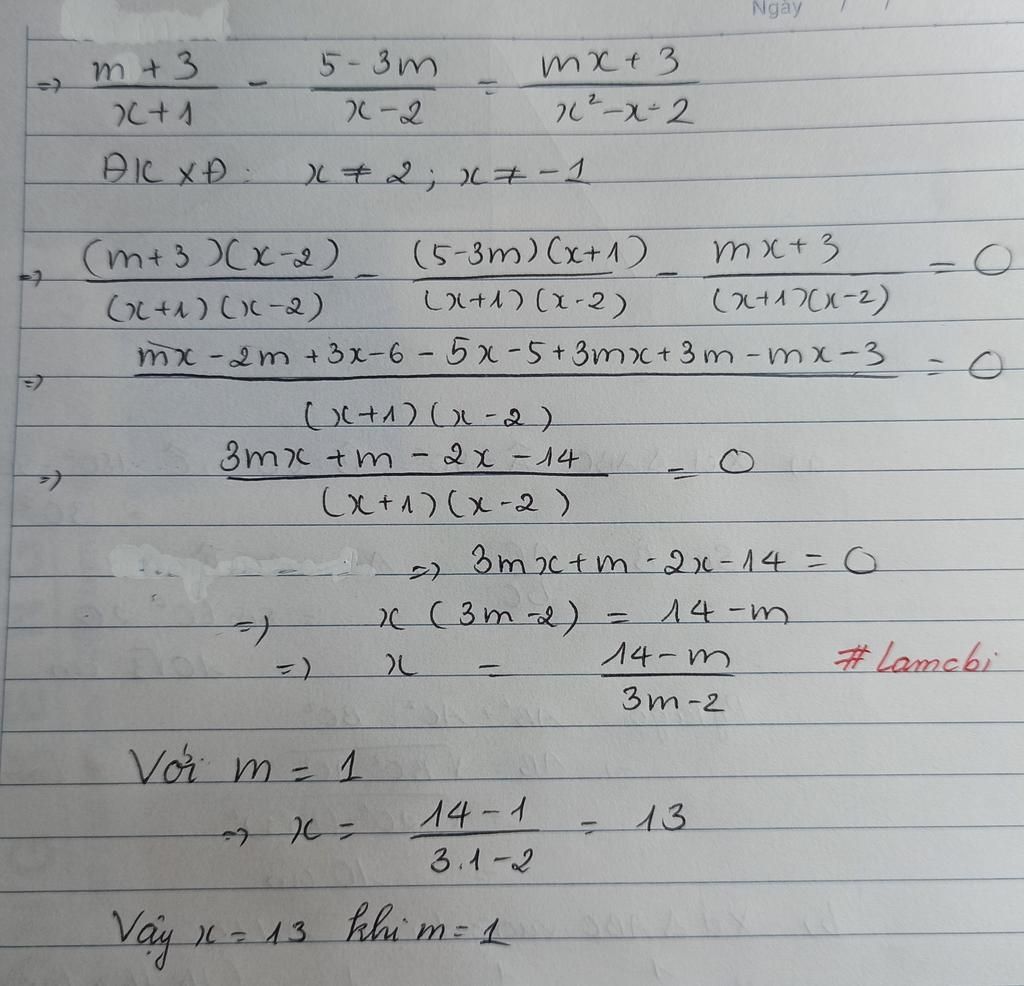 Ngày / /
=> (m + 3)/(x + 1) - (5 - 3m)/(x - 2) = (mx + 3)/(x² - x - 2)
ĐKXĐ: x ≠ 2 ; x ≠ -1
=> ((m+3)(x-2))/((x+1)(x-2)) - ((5-3m)(x+1))/((x+1)(x-2)) - (mx+3)/((x+1)(x-2)) = 0
=> (mx - 2m + 3x - 6 - 5x - 5 + 3mx + 3m - mx - 3)/((x+1)(x-2)) = 0
=> (3mx + m - 2x - 14)/((x+1)(x-2)) = 0
=> 3mx + m - 2x - 14 = 0
=> x (3m - 2) = 14 - m
=> x = (14 - m)/(3m - 2) #Lamcbi
Với m = 1
=> x = (14 - 1)/(3.1 - 2) = 13
Vậy x = 13 khi m = 1